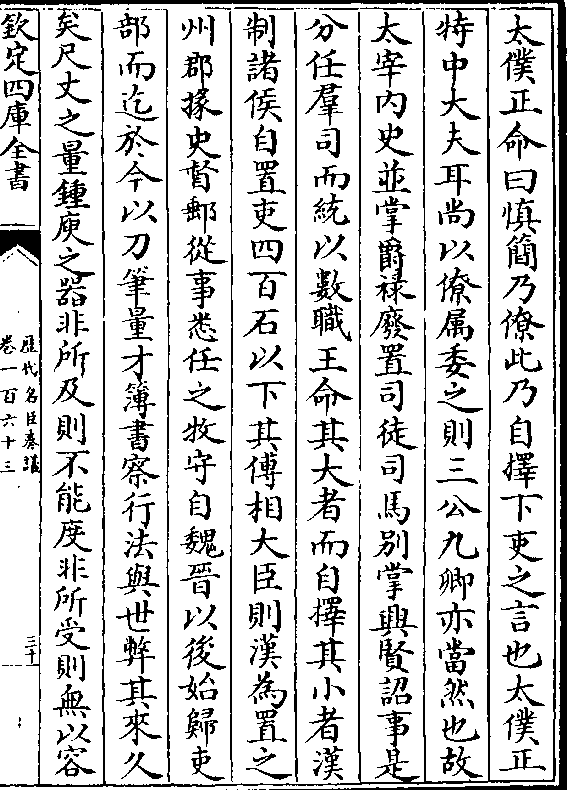 太僕正命曰慎簡乃僚此乃自擇下吏之言也太僕正
特中大夫耳尚以僚属委之則三公九卿亦當然也故
太宰内史並掌爵禄廢置司徒司馬别掌興賢詔事是
分任羣司而統以數職王命其大者而自擇其小者漢
制諸侯自置吏四百石以下其傅相大臣則漢為置之
州郡掾史督郵從事悉任之牧守自魏晉以後始歸吏
部而迄於今以刀筆量才簿書察行法與世弊其來久
矣尺丈之量鍾庾之器非所及則不能度非所受則無以容
欽定四庫全書
歴代名臣奏議
卷一百六十三
三十